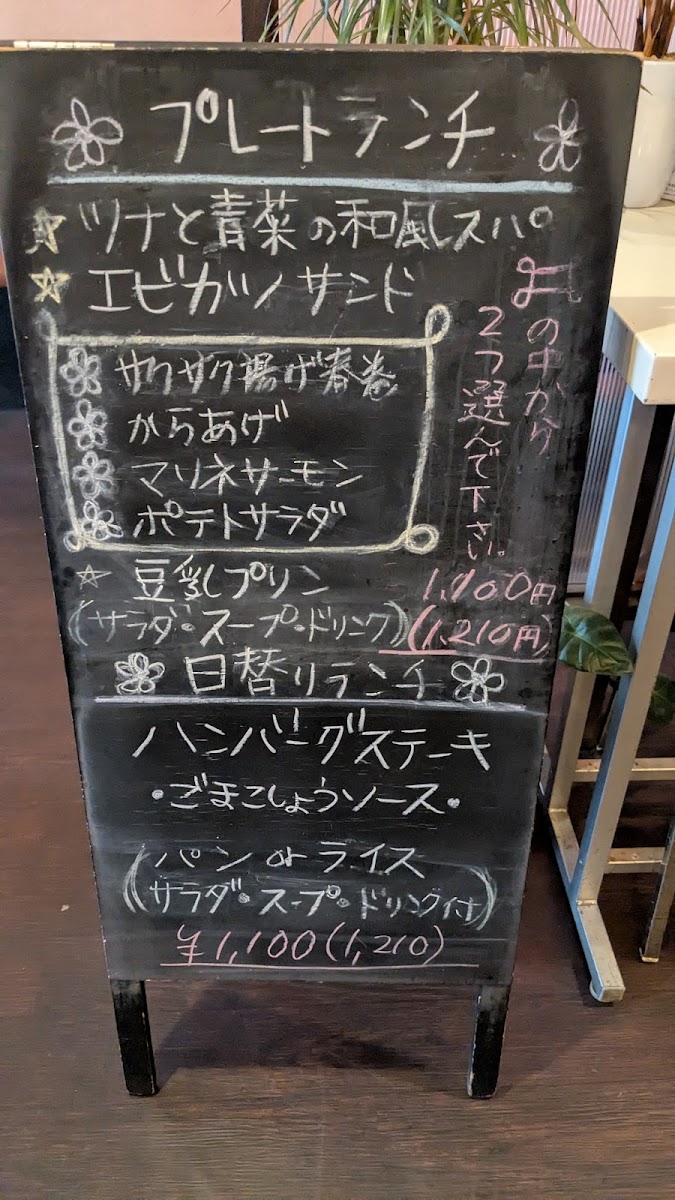 プレートランチ
ツナと青菜の和風スパ
エビカツサンド
サクサク揚げ春巻
からあげ
マリネサーモン
ポテトサラダ
の中から
2つ選んで下さい。
豆乳プリン 1,100円
(サラダ・スープ・ドリンク) (1,210円)
日替りランチ
ハンバーグステーキ
・ごまこしょうソース・
パン or ライス
(サラダ・スープ・ドリンク付)
¥1,100(1,210)